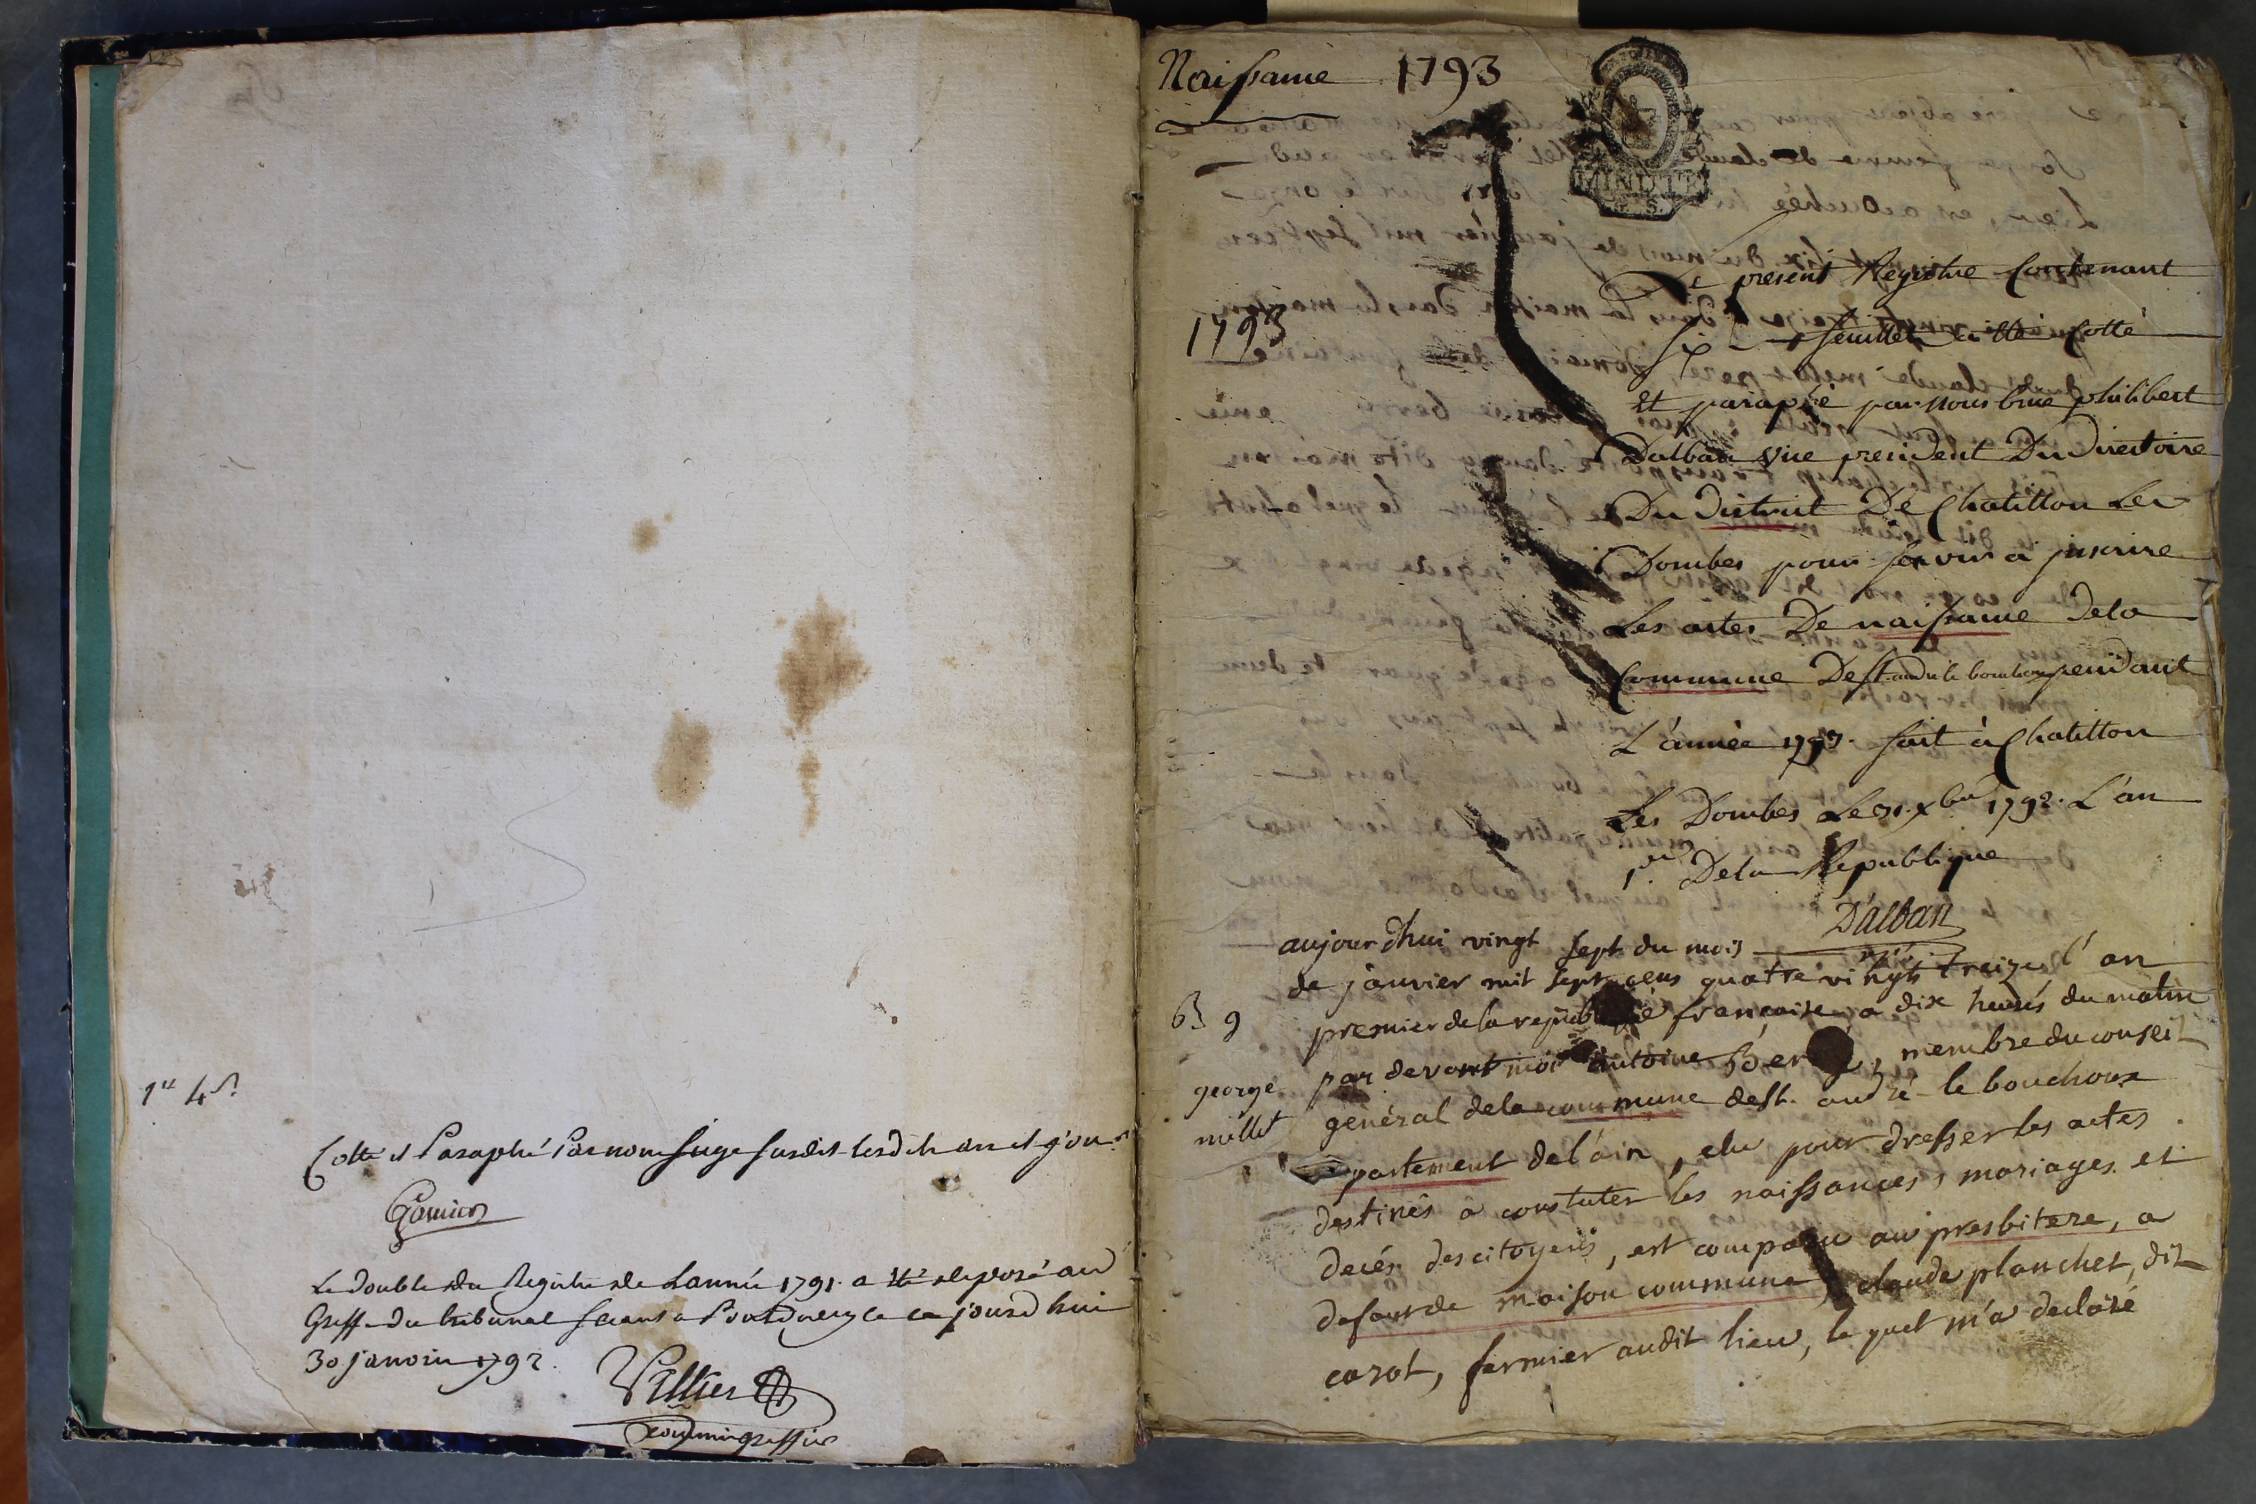 1er 4 r.
Cotté et Paraphé Par nous Juge susdit lesdits an et jour
Garnier
Le double du Registre de Lannée 1791. a été deposé au
Greffe du tribunal seant a Pontdeveyle ce jourd'hui
30 janvier 1792.
commis greffier
Naissance 1793
MINUTE
1793
Le present Registre Contenant
six feuillets a été Cotté
et paraphé par nous Cne philibert
Dalban vice president Du Directoire
Du District De Chatillon Les
Dombes pour servir à jnscrire
Les actes De naissance Dela
Commune De St andré le bouchoux pendant
L'année 1793. fait à Chatillon
Les Dombes Le 31. Xbre 1792. L'an
1er. Dela Republique
D'alban
aujourd'hui vingt sept du mois
de janvier mil sept cens quatre vingts treize l'an
premier de la republique française a dix heures du matin
par devant moi Antoine Ber, membre du conseil
général de la commune de St. andré le bouchoux
departement de l'ain, elu pour dresser les actes
destinés a constater les naissances, mariages et
decés des citoyens, est comparu au presbitere, a
defaut de maison commune, claude planchet, dit
carot, fermier audit lieu, le quel m'a declaré
63 9
george
millet